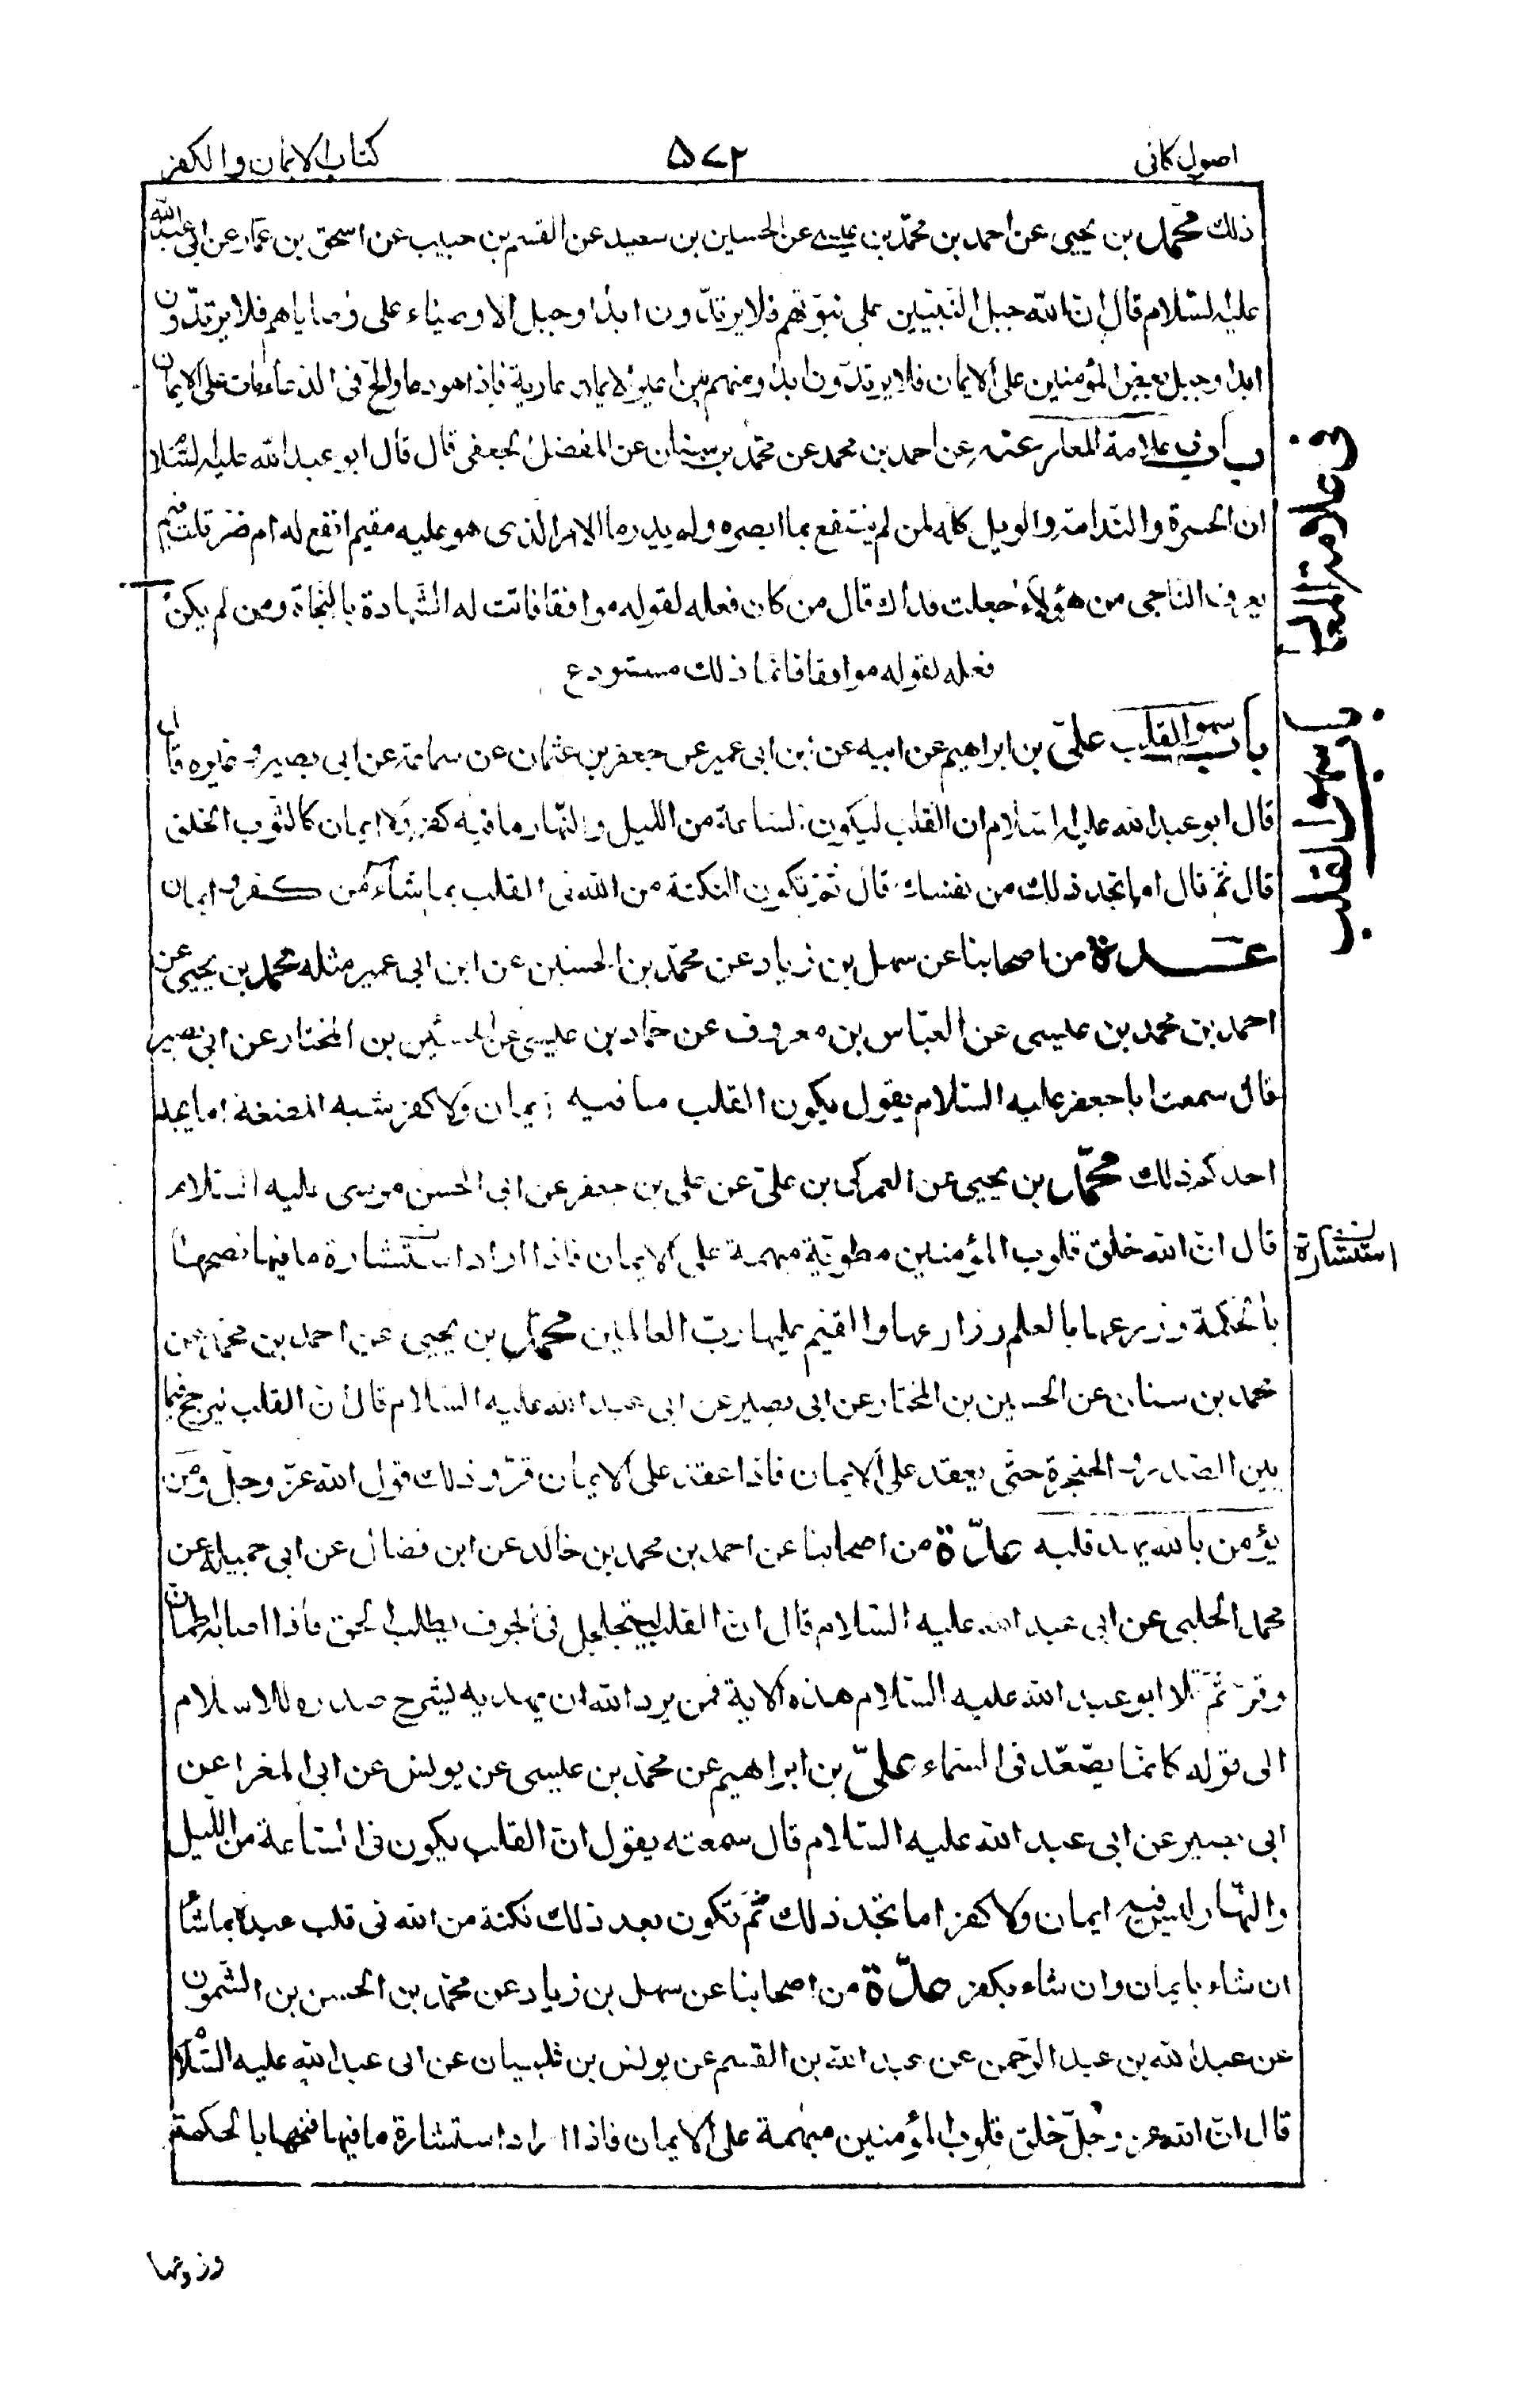 اصول كافى
۵۷۲
كتاب الايمان والكفر
ذلك محمد بن يحيى عن احمد بن محمد بن عيسى عن الحسين بن سعيد عن القسم بن حبيب عن اسحق بن عمّار عن ابى عبد الله
عليه السّلام قال ان الله جبل النّبيّين على نبوّتهم فلا يرتدّون ابدًا وجبل الاوصياء على وصاياهم فلا يرتدّون
ابدا وجبل بعض المؤمنين على الايمان فلا يرتدّون ابدًا ومنهم من اعير الايمان عارية فاذا هو دعا والحّ فى الدعاء مات على الايمان
باب فى علامة المعار عنه عن احمد بن محمد عن محمّد بن سنان عن المفضل الجعفى قال قال ابو عبد الله عليه السّلام
ان الحسرة والندامة والويل كله لمن لم ينتفع بما ابصره ولم يدر ما الامر الذى هو عليه مقيم انفع له ام ضر قلت فبم
يعرف الناجى من هؤلاء جعلت فداك قال من كان فعله لقوله موافقا فاتت له الشّهادة بالنّجاة ومن لم يكن
فعله لقوله موافقا فانما ذلك مستودع
باب سهو القلب علىّ بن ابراهيم عن ابيه عن ابن ابى عمير عن جعفر بن عثمان عن سماعة عن ابى بصير وغيره قال
قال ابو عبد الله عليه السّلام ان القلب ليكون السّاعة من الليل والنّهار ما فيه كفر ولا ايمان كالثّوب الخلق
قال ثمّ قال اما تجد ذلك من نفسك قال ثمّ تكون النكتة من الله فى القلب بما شاء من كفر وايمان
عدة من اصحابنا عن سهل بن زياد عن محمّد بن الحسين عن ابن ابى عمير مثله محمد بن يحيى عن
احمد بن محمد بن عيسى عن العبّاس بن معروف عن حمّاد بن عيسى عن الحسين بن المختار عن ابى بصير
قال سمعت ابا جعفر عليه السّلام يقول يكون القلب ما فيه ايمان ولا كفر شبه المضغة اما يجد
احدكم ذلك محمّد بن يحيى عن العمركى بن علىّ عن على بن جعفر عن ابى الحسن موسى عليه السّلام
قال انّ الله خلق قلوب المؤمنين مطويّة مبهمة على الايمان فاذا اراد استشارة ما فيها نضحها
بالحكمة وزرعها بالعلم وزارعها والقيّم عليها ربّ العالمين محمّد بن يحيى عن احمد بن محمّد عن
محمد بن سنان عن الحسين بن المختار عن ابى بصير عن ابى عبد الله عليه السّلام قال ان القلب ليرجج فيما
بين الصّدر والحنجرة حتّى يعقد على الايمان فاذا عقد على الايمان قرّ وذلك قول الله عزّ وجلّ ومن
يؤمن بالله يهد قلبه عدّة من اصحابنا عن احمد بن محمد بن خالد عن ابن فضال عن ابى جميلة عن
محمد الحلبى عن ابى عبد الله عليه السّلام قال ان القلب ليتجلجل فى الجوف يطلب الحق فاذا اصابه اطمأنّ
وقرّ ثمّ تلا ابو عبد الله عليه السّلام هذه الاية فمن يرد الله ان يهديه يشرح صدره للاسلام
الى قوله كانّما يصّعّد فى السّماء علىّ بن ابراهيم عن محمّد بن عيسى عن يونس عن ابى المغرا عن
ابى بصير عن ابى عبد الله عليه السّلام قال سمعته يقول انّ القلب يكون فى السّاعة من اللّيل
والنّهار ليس فيه ايمان ولا كفر اما تجد ذلك ثمّ تكون بعد ذلك نكتة من الله فى قلب عبده بما شاء
ان شاء بايمان وان شاء بكفر عدّة من اصحابنا عن سهل بن زياد عن محمّد بن الحسن بن الشّمون
عن عبد الله بن عبد الرّحمن عن عبد الله بن القسم عن يونس بن ظبيان عن ابى عبد الله عليه السّلام
قال انّ الله عزّ وجلّ خلق قلوب المؤمنين مبهمة على الايمان فاذا اراد استشارة ما فيها فتحها بالحكمة
فى علامة المعار
باب سهو القلب
استشارة
وزرعها